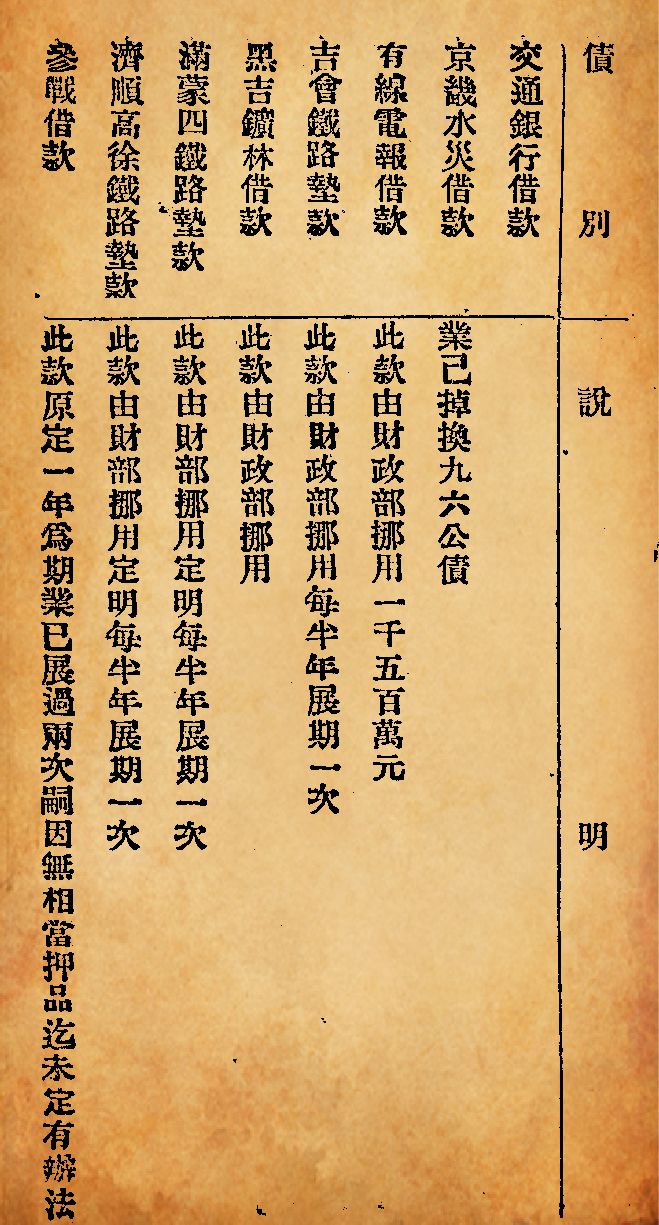 債別　說明
交通銀行借款
京畿水災借款　業已掉換九六公債
有線電報借款　此款由財政部挪用一千五百萬元
吉會鐵路墊款　此款由財政部挪用每半年展期一次
黑吉鑛林借款　此款由財政部挪用
滿蒙四鐵路墊款　此款由財部挪用定明每半年展期一次
濟順高徐鐵路墊款　此款由財部挪用定明每半年展期一次
參戰借款　此款原定一年爲期業已展過兩次嗣因無相當押品迄未定有辦法